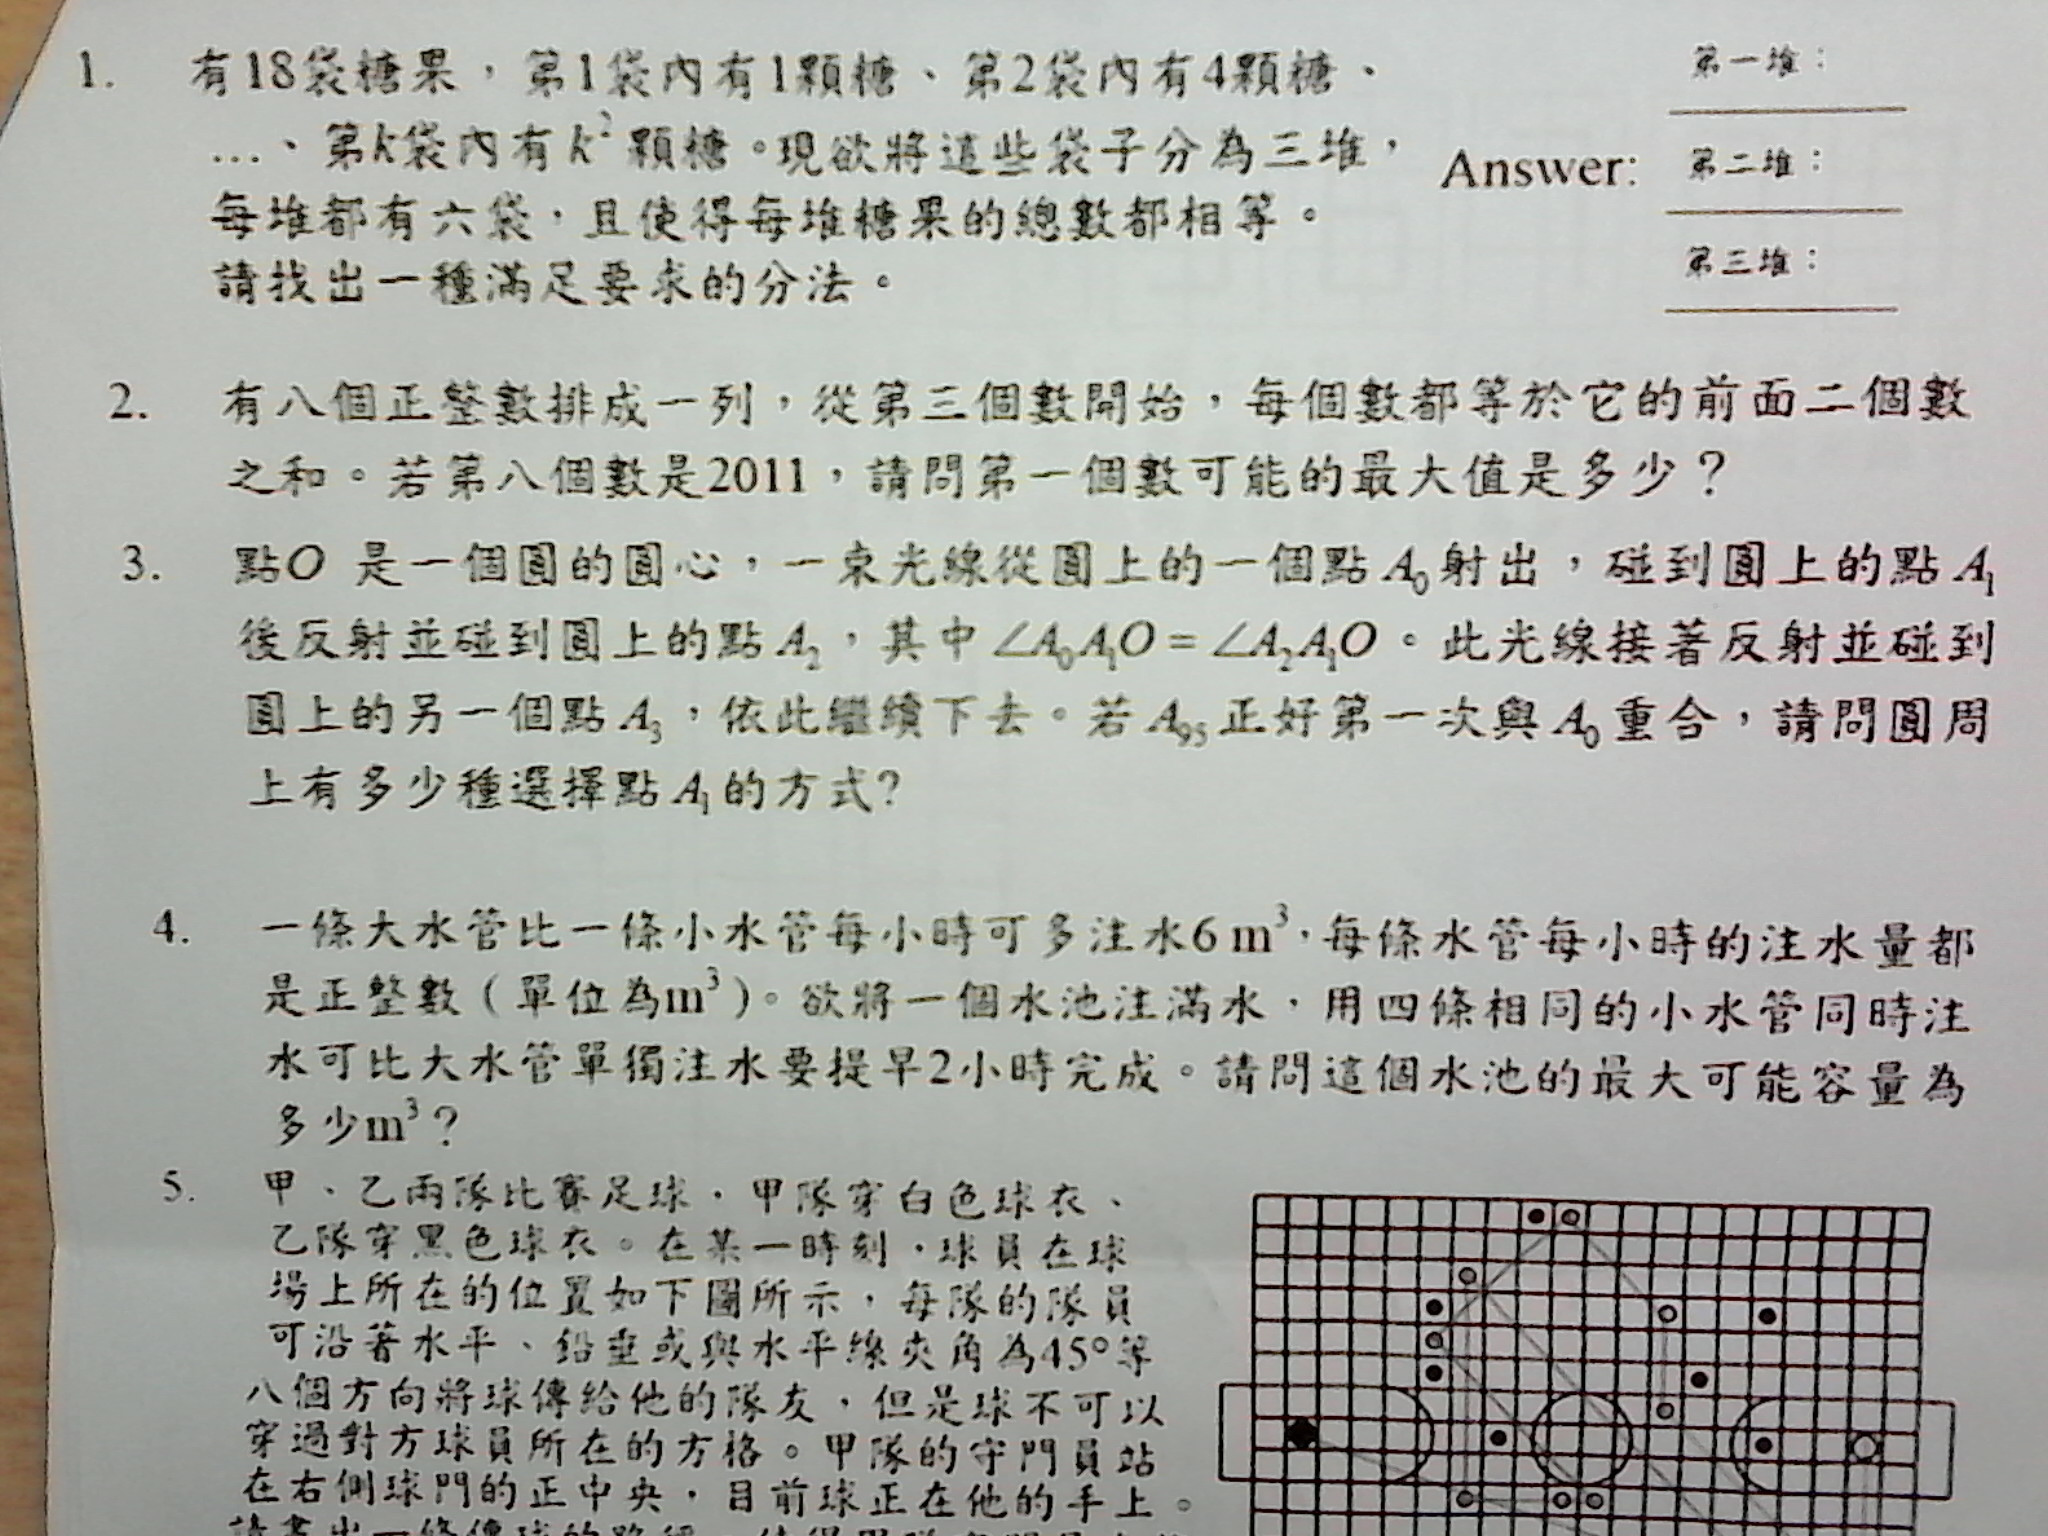 1. 有18袋糖果，第1袋內有1顆糖、第2袋內有4顆糖、
…、第k袋內有k²顆糖。現欲將這些袋子分為三堆，
每堆都有六袋，且使得每堆糖果的總數都相等。
請找出一種滿足要求的分法。
Answer:
第一堆：
第二堆：
第三堆：
2. 有八個正整數排成一列，從第三個數開始，每個數都等於它的前面二個數
之和。若第八個數是2011，請問第一個數可能的最大值是多少？
3. 點O 是一個圓的圓心，一束光線從圓上的一個點A₀射出，碰到圓上的點A₁
後反射並碰到圓上的點A₂，其中∠A₀A₁O = ∠A₂A₁O。此光線接著反射並碰到
圓上的另一個點A₃，依此繼續下去。若A₉₅正好第一次與A₀重合，請問圓周
上有多少種選擇點A₁的方式?
4. 一條大水管比一條小水管每小時可多注水6 m³，每條水管每小時的注水量都
是正整數（單位為m³）。欲將一個水池注滿水，用四條相同的小水管同時注
水可比大水管單獨注水要提早2小時完成。請問這個水池的最大可能容量為
多少m³？
5. 甲、乙兩隊比賽足球，甲隊穿白色球衣、
乙隊穿黑色球衣。在某一時刻，球員在球
場上所在的位置如下圖所示，每隊的隊員
可沿著水平、鉛垂或與水平線夾角為45°等
八個方向將球傳給他的隊友，但是球不可以
穿過對方球員所在的方格。甲隊的守門員站
在右側球門的正中央，目前球正在他的手上。